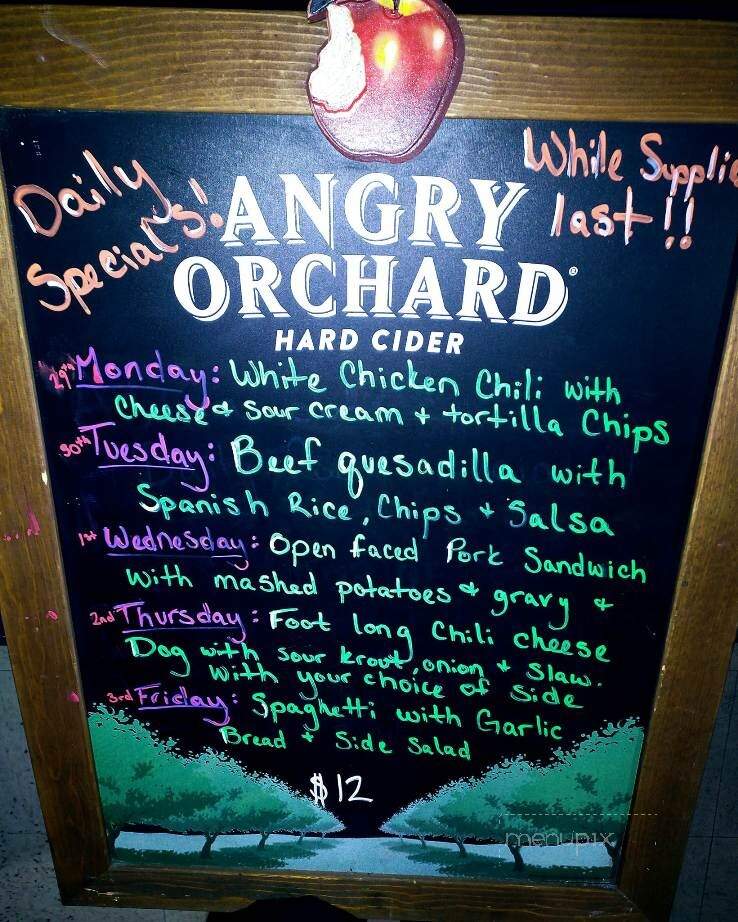 Daily
Specials!
While Supplie
last!!
ANGRY
ORCHARD®
HARD CIDER
29th Monday: White Chicken Chili with
Cheese + Sour cream + tortilla Chips
30th Tuesday: Beef quesadilla with
Spanish Rice, Chips + Salsa
1st Wednesday: Open faced Pork Sandwich
with mashed potatoes + gravy +
2nd Thursday: Foot long Chili cheese
Dog with sour krout, onion + Slaw.
with your choice of side
3rd Friday: Spaghetti with Garlic
Bread + Side Salad
$12
menupix